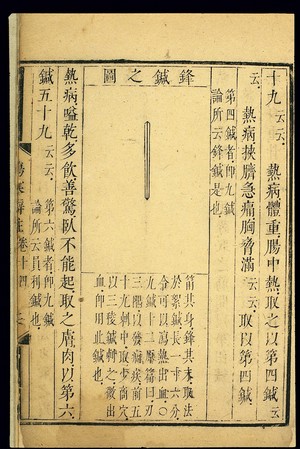 十九云云
熱病體重腸中熱取之以第四鍼云
云
熱病挾臍急痛胸脅滿云云取以第四鍼
云云
第四鍼者即九鍼
論所云鋒鍼是也
鋒鍼之圖
筩其身鋒其末取法
於絮鍼長一寸六分
令可以瀉熱出血〇
九鍼十二原篇曰刃
三隅以發痼疾前五
十九刺中取
以三稜鍼
血即用此鍼也
熱病嗌乾多飲善驚臥不能起取之膚肉以第六
鍼五十九云云
第六鍼者即九鍼
論所云員利鍼也
卷十四